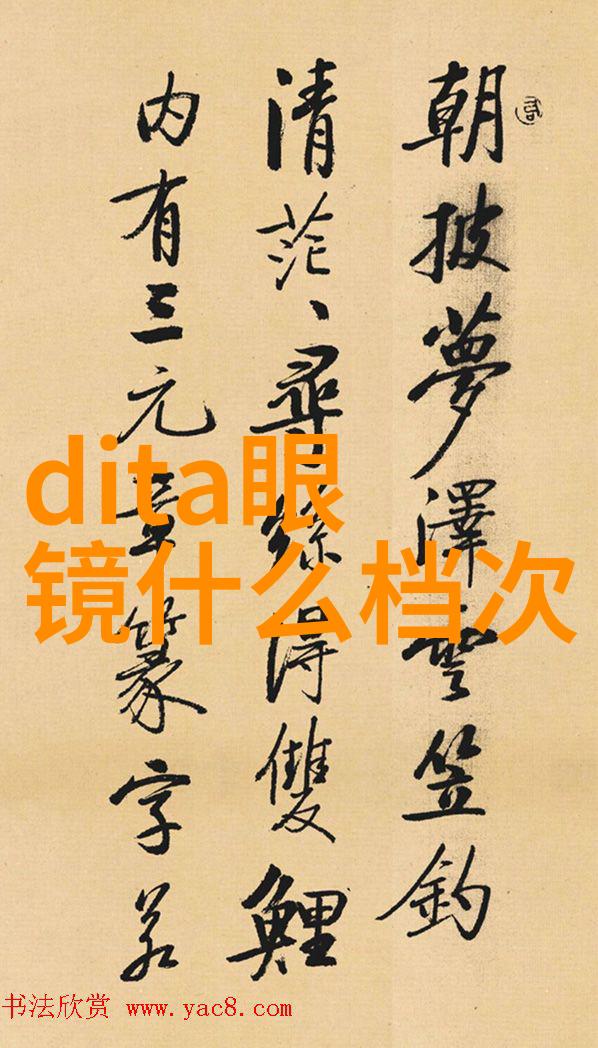 朝披夢澤雲笠釣
清茫、尋絲得雙鯉
内有三元章篆字若
dita眼
镜什么档次
书法欣赏 www.yac8.com